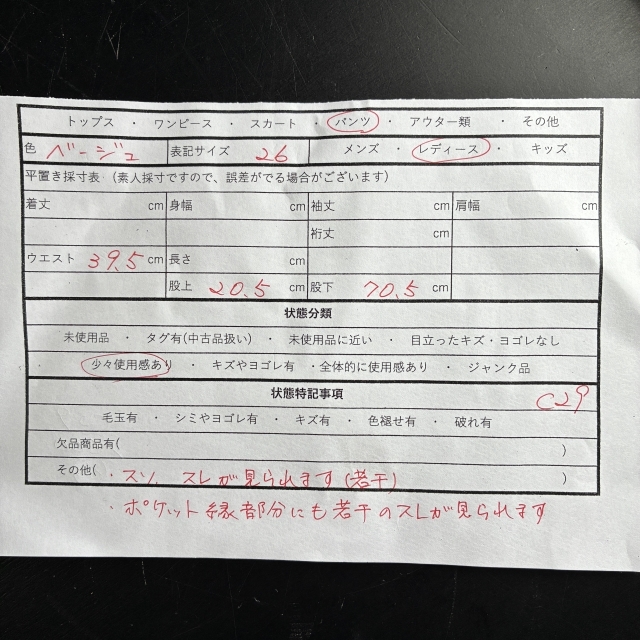 トップス ・ ワンピース ・ スカート ・ パンツ ・ アウター類 ・ その他
色 ベージュ 表記サイズ 26 メンズ ・ レディース ・ キッズ
平置き採寸表 (素人採寸ですので、誤差がでる場合がございます)
着丈 cm 身幅 cm 袖丈 cm 肩幅 cm
裄丈 cm
ウエスト 39.5 cm 長さ cm
股上 20.5 cm 股下 70.5 cm
状態分類
未使用品 ・ タグ有(中古品扱い) ・ 未使用品に近い ・ 目立ったキズ・ヨゴレなし
少々使用感あり ・ キズやヨゴレ有 ・全体的に使用感あり ・ ジャンク品
状態特記事項 C29
毛玉有 ・ シミやヨゴレ有 ・ キズ有 ・ 色褪せ有 ・ 破れ有
欠品商品有( )
その他( ・スソ スレが見られます(若干) )
・ポケット縁部分にも若干のスレが見られます